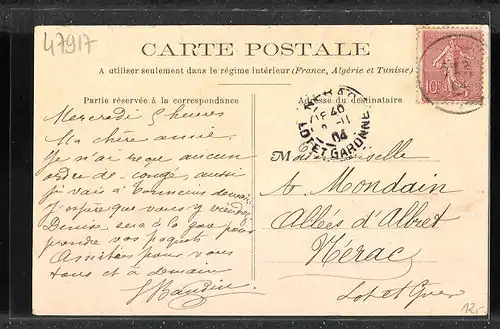 47917
CARTE POSTALE
A utiliser seulement dans le régime intérieur (France, Algérie et Tunisie)
Partie réservée à la correspondance
Adresse du destinataire
NÉRAC
40
04
LOT ET GARONNE
10
Mercredi 5 heures
Ma chère amie
Je n'ai reçue aucun
ordre de congé, aussi
je vais à Tonneins demain
J'espère que vous y viendrez
Denise sera à la gare pour
prendre vos paquets
Amitiés pour vous
tous et à demain
Mademoiselle
Mondain
Allées d'Albret
Nérac
Lot et Gar
12,-